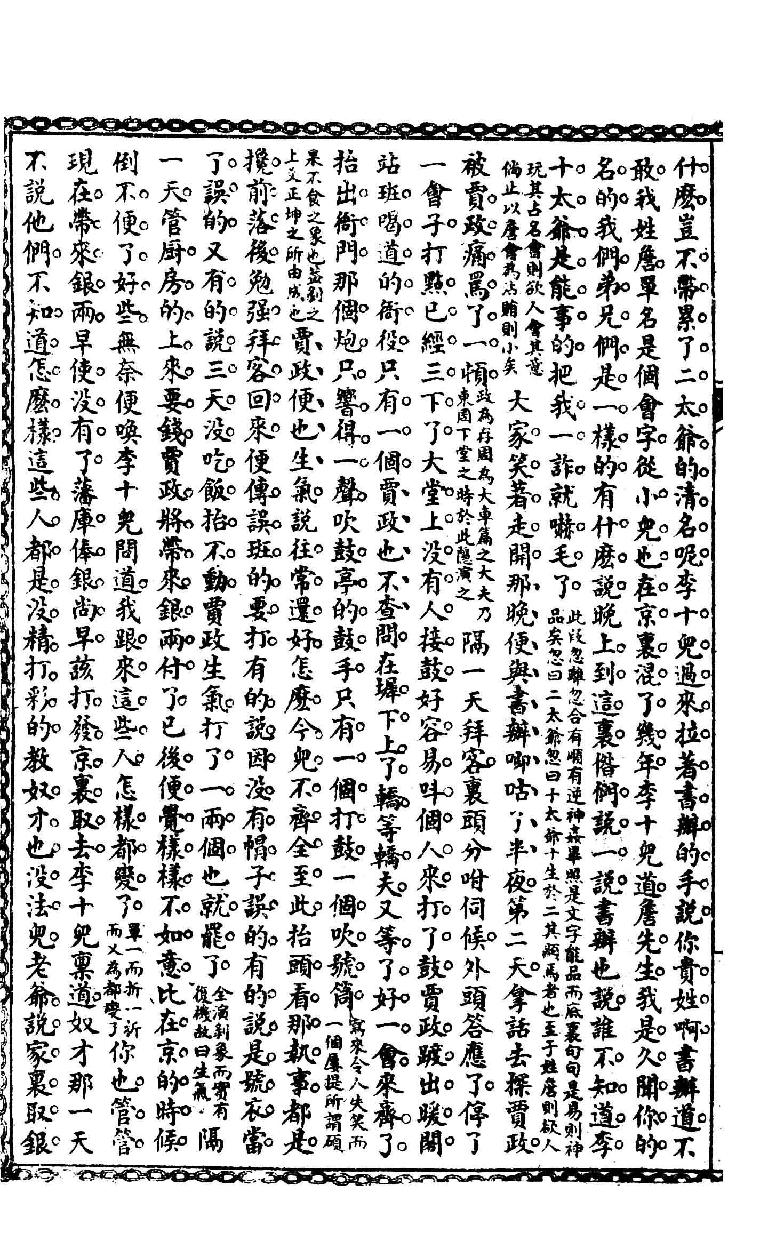 什麽豈不帶累了二太爺的清名呢李十兒過來拉著書辦的手説你貴姓啊書辦道不
敢我姓詹單名是個會字從小兒也在京裏混了幾年李十兒道詹先生我是久聞你的
名的我們弟兄們是一樣的有什麽説晚上到這裏偺們説一説書辦也説誰不知道李
十太爺是能事的把我一詐就嚇毛了此段忽離忽合有順有逆神姦畢照是文字能品而底裏句句是易則神品矣忽曰二太爺忽曰十太爺十生於二其爲馬者也至于姓詹則欲人
玩其占名會則欲人會其意倘止以詹會爲沾賄則小矣大家笑著走開那晚便與書辦唧咕了半夜第二天拿話去探賈政
被賈政痛罵了一頓政爲存周爲大車篇之大夫乃東周下堂之時於此隱演之隔一天拜客裏頭分咐伺候外頭答應了停了
一會子打點已經三下了大堂上没有人接鼓好容易呌個人來打了鼓賈政踱出暖閣
站班喝道的衙役只有一個賈政也不查問在墀下上了轎等轎夫又等了好一會來齊了
抬出衙門那個炮只響得一聲吹鼓亭的鼓手只有一個打鼓一個吹號筒寫來令人失笑而一個屢提所謂碩
果不食之象也益剝之上爻正坤之所由成也賈政便也生氣説往常還好怎麽今兒不齊全至此抬頭看那執事都是
攙前落後勉强拜客回來便傳誤班的要打有的説因没有帽子誤的有的説是號衣當
了誤的又有的説三天没吃飯抬不動賈政生氣打了一兩個也就罷了全演剝象而實有復機故曰生氣隔
一天管厨房的上來要錢賈政將帶來銀兩付了已後便覺樣樣不如意比在京的時候
倒不便了好些無奈便喚李十兒問道我跟來這些人怎樣都變了單一而折一折而乂爲都變了你也管管
現在帶來銀兩早使没有了藩庫俸銀尚早該打發京裏取去李十兒禀道奴才那一天
不説他們不知道怎麽樣這些人都是没精打彩的教奴才也没法兒老爺説家裏取銀